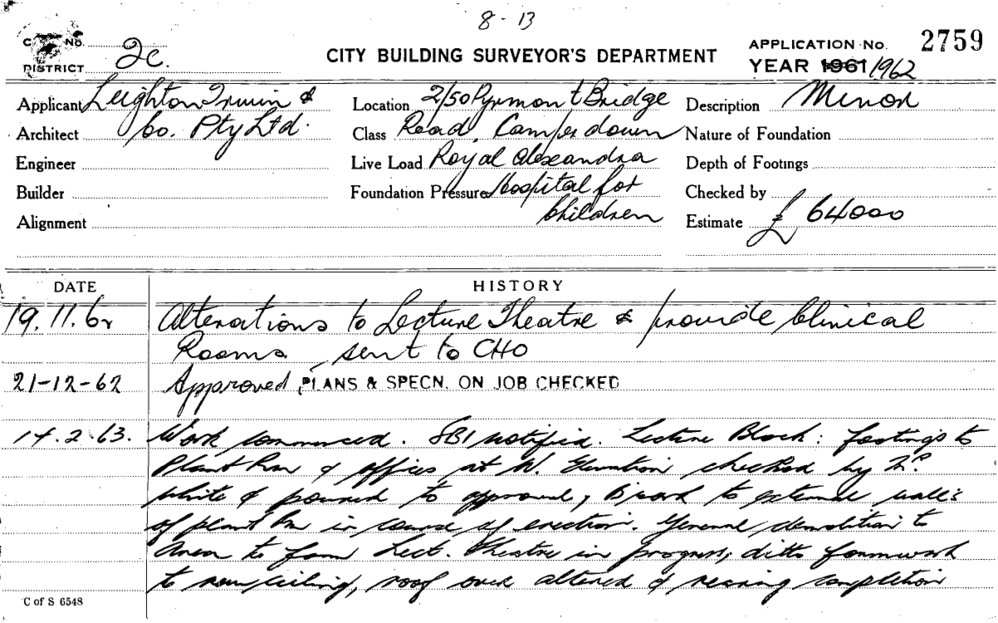 8 - 13
C No. 2c.
DISTRICT
CITY BUILDING SURVEYOR'S DEPARTMENT
APPLICATION No. 2759
YEAR 1961/1962
Applicant Leighton Irwin &
Architect Co. Pty Ltd.
Engineer
Builder
Alignment
Location 2/50 Pyrmont Bridge
Class Road, Camperdown
Live Load Royal Alexandra
Foundation Pressure Hospital for
Children
Description Minor
Nature of Foundation
Depth of Footings
Checked by
Estimate £ 64000
DATE HISTORY
19.11.62 Alterations to Lecture Theatre & provide Clinical
Rooms sent to CHO
21-12-62 Approved PLANS & SPECN. ON JOB CHECKED
14.2.63. Work commenced. SBI notified. Lecture Block: footings to
Plant Rm & offices at N. Elevation checked by
White & poured to approval, Brwk to external walls
of plant Rm in course of erection. General demolition to
Area to form Lect. Theatre in progress, ditto formwork
to new ceiling, roof over altered & nearing completion
C of S 6548